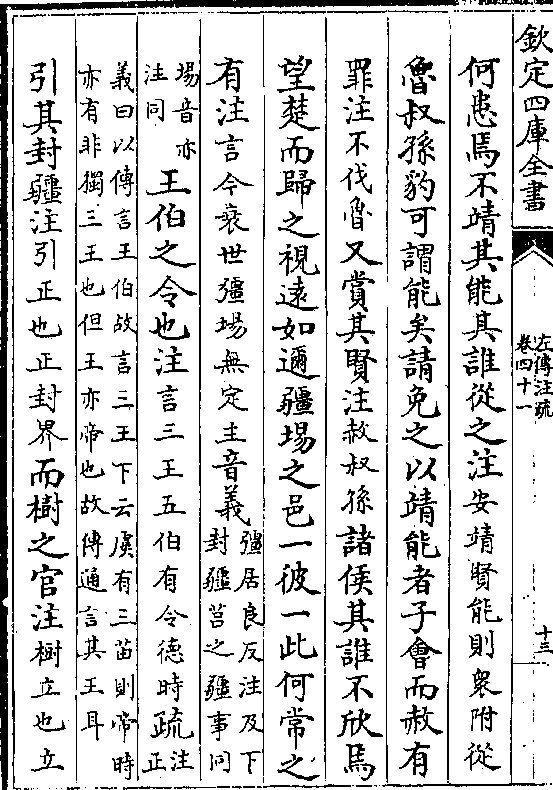 欽定四庫全書
左傳注疏
卷四十一
十三
何患焉不靖其能其誰從之注安靖賢能則衆附從
魯叔孫豹可謂能矣請免之以靖能者子會而赦有
罪注不伐魯又賞其賢注赦叔孫諸侯其誰不欣焉
望楚而歸之視遠如邇疆場之邑一彼一此何常之
有注言今衰世疆場無定主音義疆居良反注及下
封疆莒之疆事同
場音亦
注同王伯之令也注言三王五伯有令德時疏注
正
義曰以傳言王伯故言三王下云虞有三苗則帝時
亦有非獨三王也但王亦帝也故傳通言其王耳
引其封疆注引正也正封界而樹之官注樹立也立